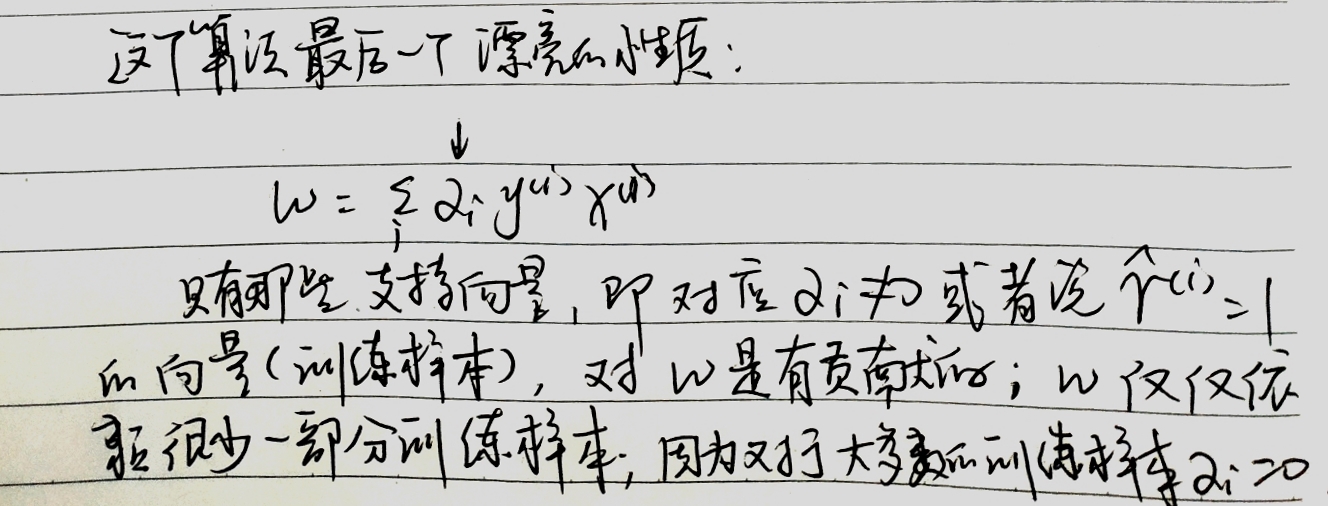 这个算法最后一个漂亮的性质：
↓
w = Σ_i α_i y^(i) x^(i)
只有那些支持向量，即对应 α_i ≠0 或者说 γ̂^(i) = 1
的向量（训练样本），对 w 是有贡献的；w 仅仅依
赖很少一部分训练样本，因为对于大多数的训练样本 α_i = 0